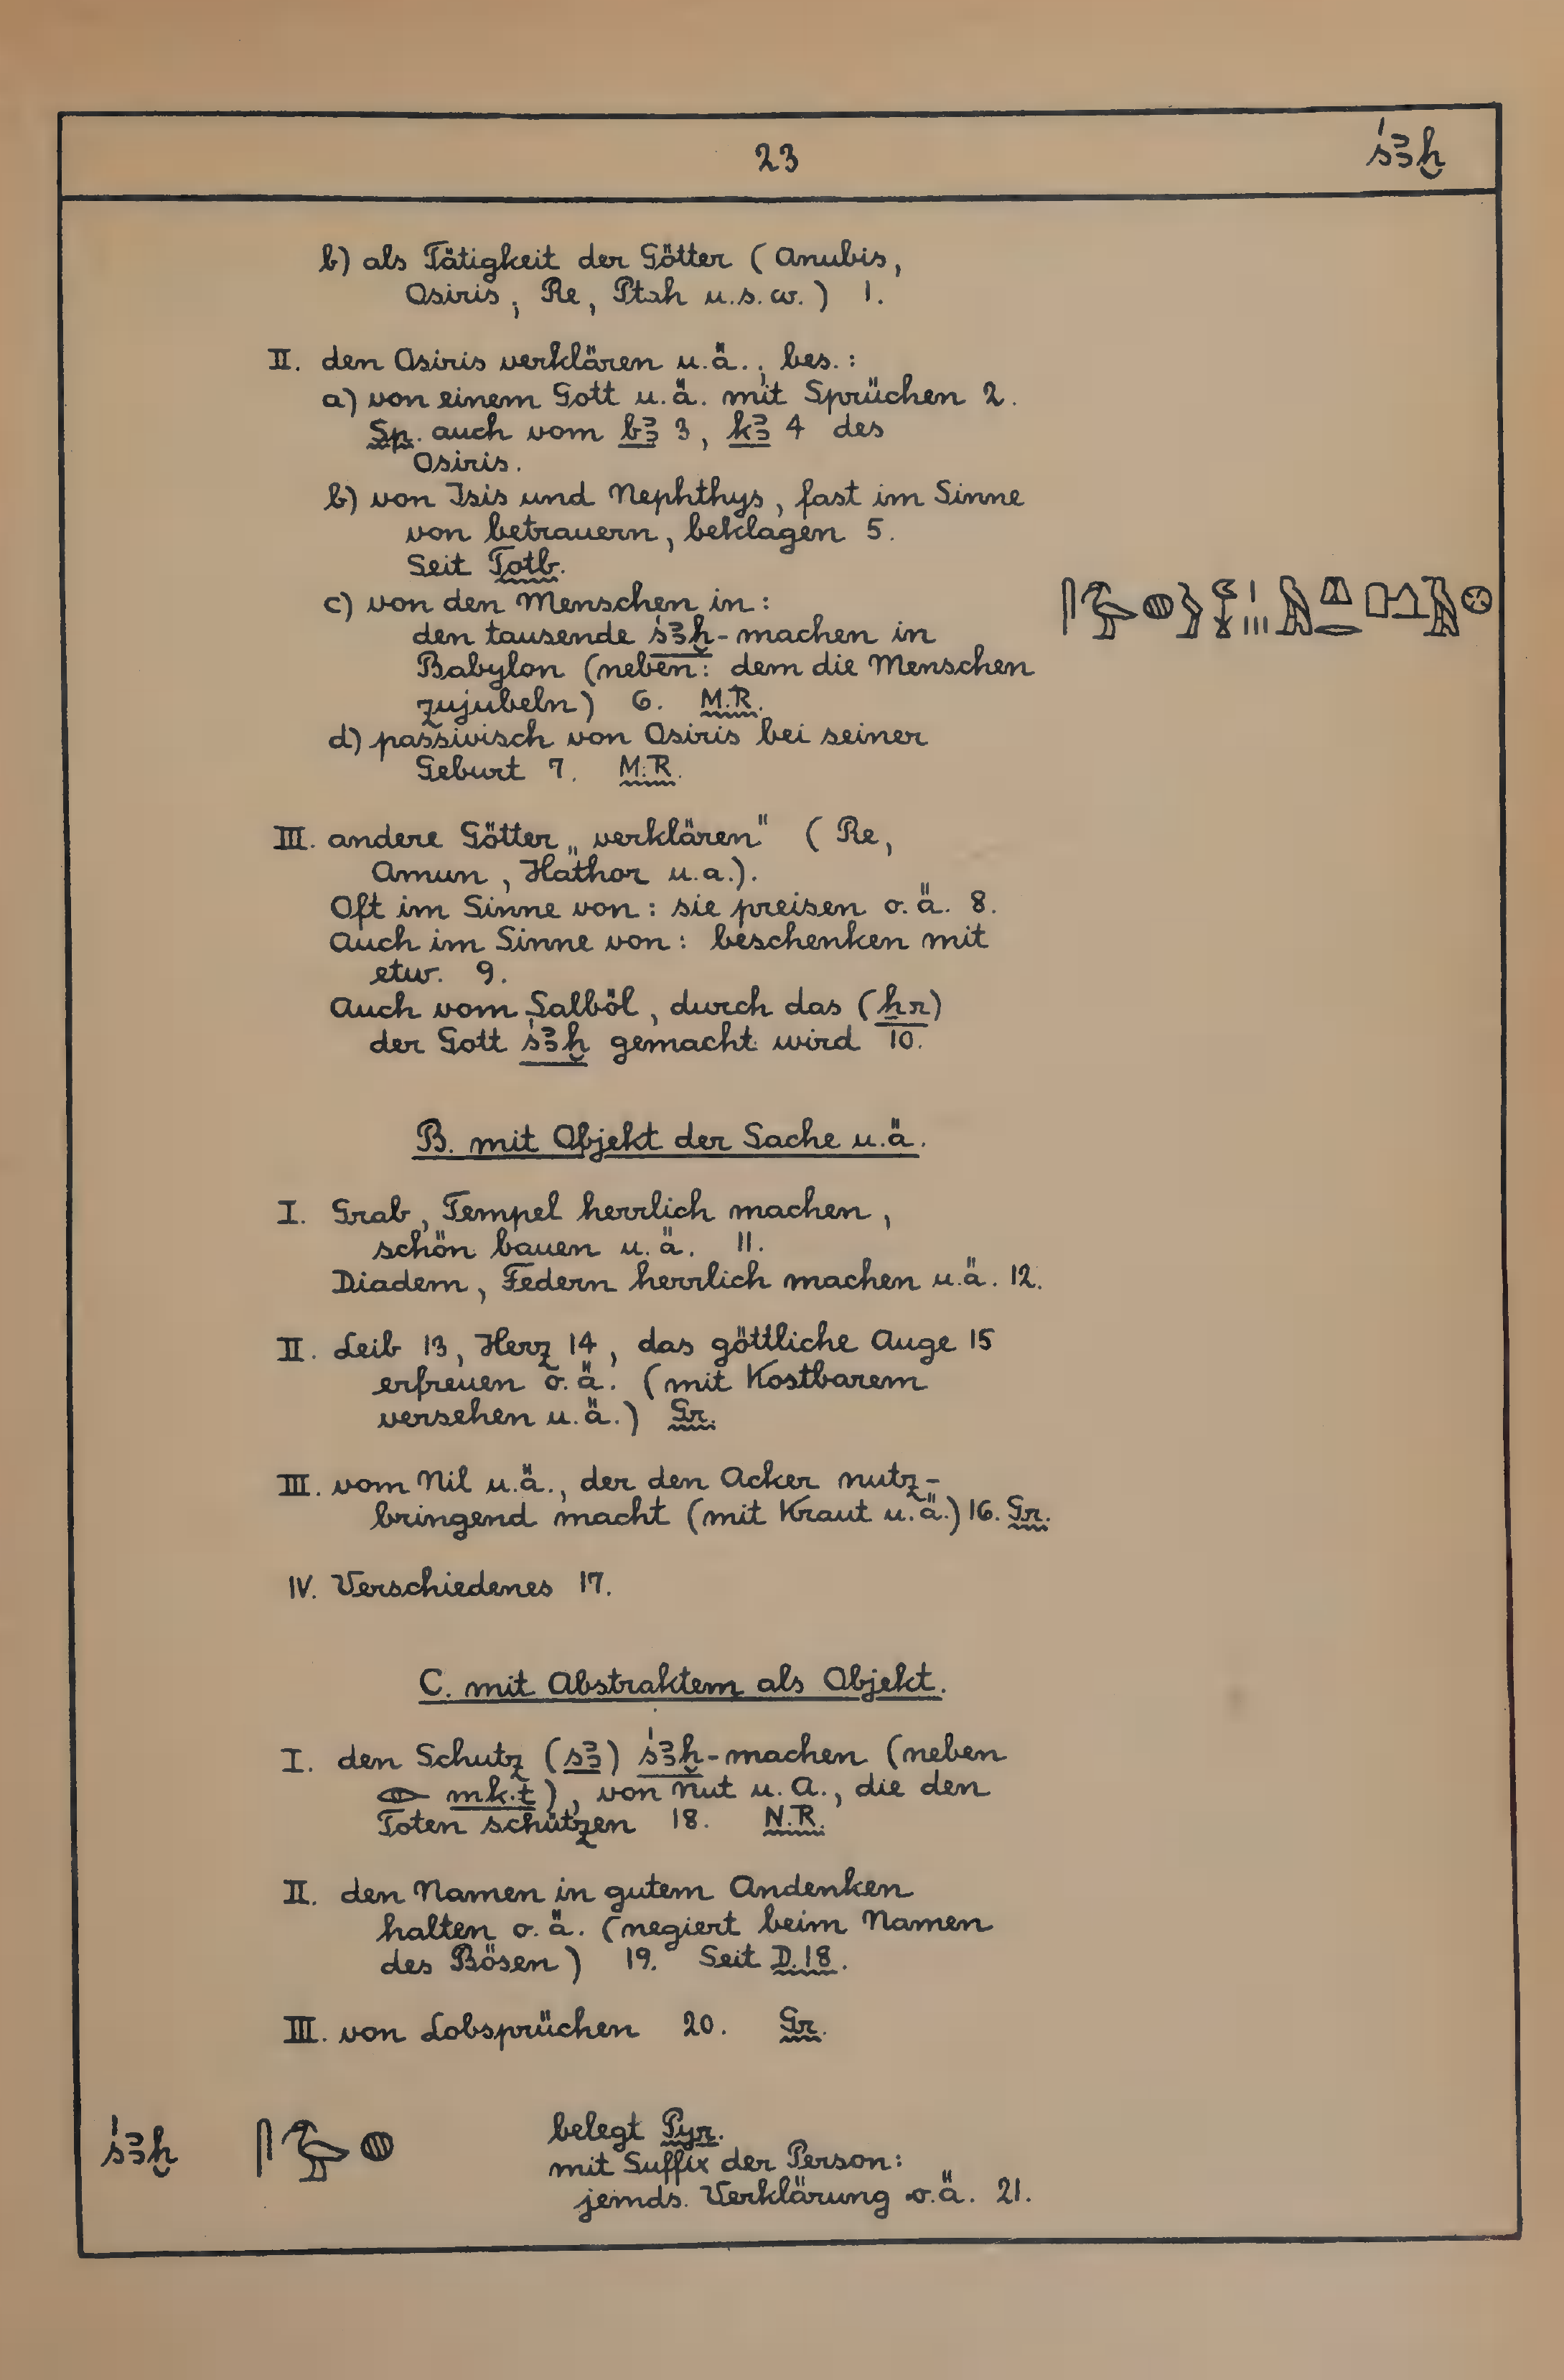 23
ś3ḫ
b) als Tätigkeit der Götter (Anubis,
Osiris, Re, Ptah u.s.w.) 1.
II. den Osiris verklären u.ä., bes.:
a) von einem Gott u.ä. mit Sprüchen 2.
Sp. auch vom b3 3, k3 4 des
Osiris.
b) von Isis und Nephthys, fast im Sinne
von betrauern, beklagen 5.
Seit Totb.
c) von den Menschen in:
den tausende ś3ḫ-machen in
Babylon (neben: dem die Menschen
zujubeln) 6. M.R.
d) passivisch von Osiris bei seiner
Geburt 7. M.R.
III. andere Götter „verklären" (Re,
Amun, Hathor u.a.).
Oft im Sinne von: sie preisen o.ä. 8.
Auch im Sinne von: beschenken mit
etw. 9.
Auch vom Salböl, durch das (ḥr)
der Gott ś3ḫ gemacht wird 10.
B. mit Objekt der Sache u.ä.
I. Grab, Tempel herrlich machen,
schön bauen u.ä. 11.
Diadem, Federn herrlich machen u.ä. 12.
II. Leib 13, Herz 14, das göttliche Auge 15
erfreuen o.ä. (mit Kostbarem
versehen u.ä.) Gr.
III. vom Nil u.ä., der den Acker nutz-
bringend macht (mit Kraut u.ä.) 16. Gr.
IV. Verschiedenes 17.
C. mit Abstraktem als Objekt.
I. den Schutz (s3) ś3ḫ-machen (neben
mk.t), von Nut u. A., die den
Toten schützen 18. N.R.
II. den Namen in gutem Andenken
halten o.ä. (negiert beim Namen
des Bösen) 19. Seit D.18.
III. von Lobsprüchen 20. Gr.
ś3ḫ
belegt Pyr.
mit Suffix der Person:
jemds. Verklärung o.ä. 21.